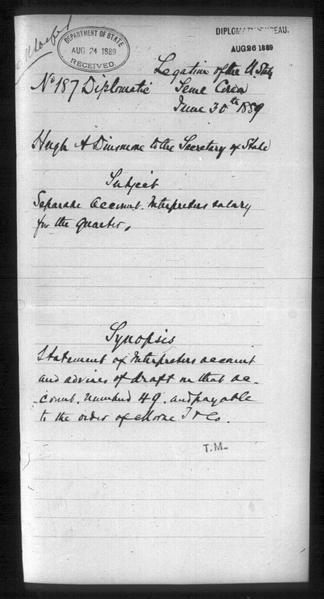 DEPARTMENT OF STATE
AUG 24 1889
RECEIVED.
DIPLOMATIC BUREAU.
AUG 26 1889
Legation of the U States
No 187 Diplomatic Seoul Corea
June 30th 1889
Hugh A Dinsmore to the Secretary of State
Subject
Separate Account. Interpreters salary
for the quarter.
Synopsis
Statement of Interpreters account
and advises of draft on that ac-
count. numbered 49. and payable
to the order of Morse T & Co.
T.M—